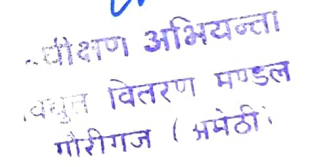 ..वीक्षण अभियन्ता
विद्युत वितरण मण्डल
गौरीगंज ( अमेठी